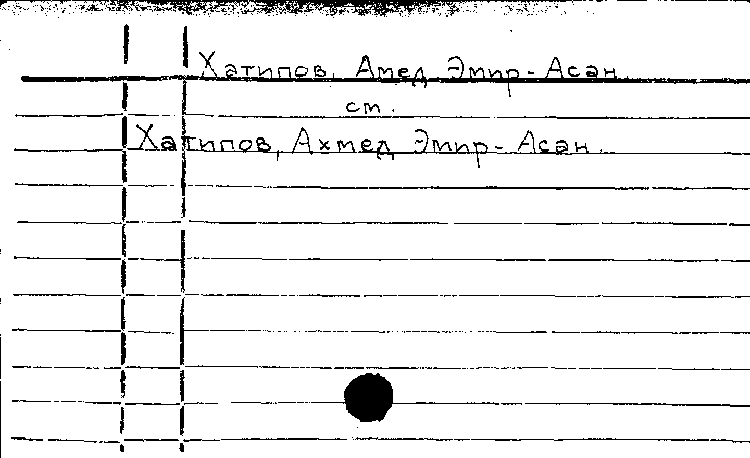 Хатипов, Амед Эмир-Асан
ст.
Хатипов, Ахмед Эмир-Асан.